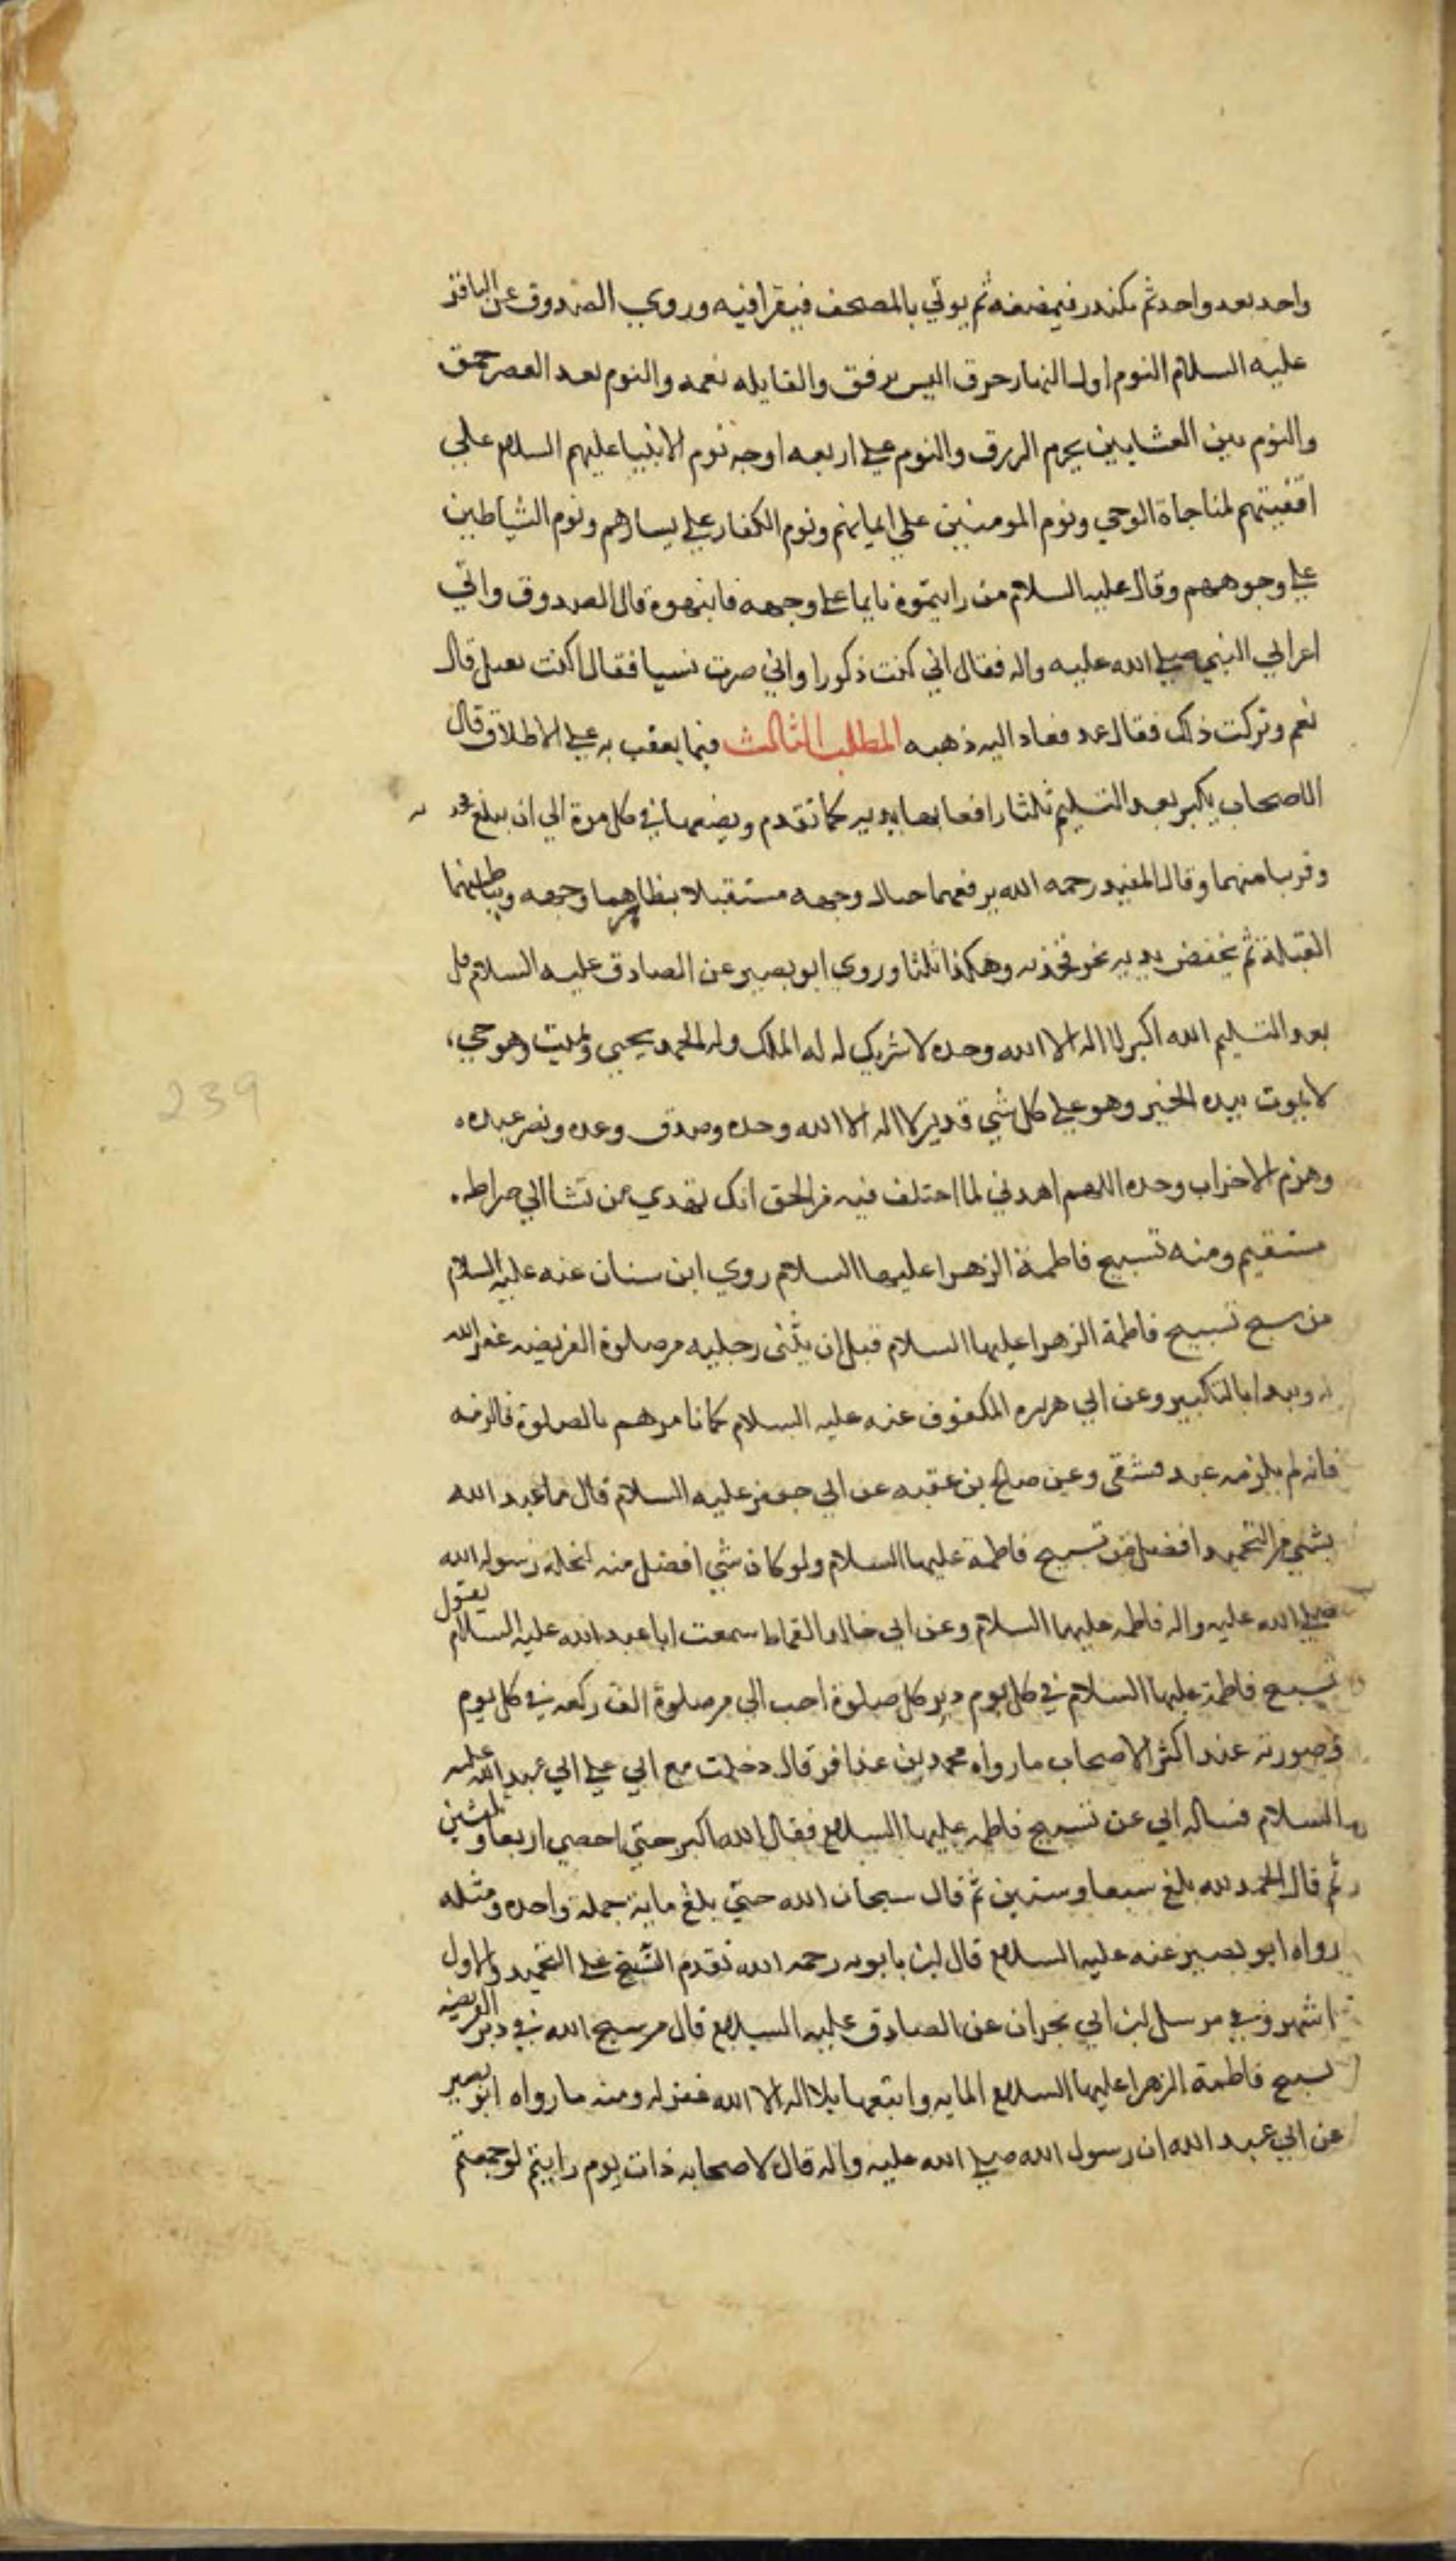 واحد بعد واحد ثم بكندر فيمضغه ثم يوتي بالمصحف فيقرا فيه وروي الصدوق عن الباقر
عليه السلام النوم اول النهار خرق اليس برفق والقايله نعمه والنوم بعد العصر حمق
والنوم بين العشايين يحرم الرزق والنوم علي اربعه اوجه نوم الانبيا عليهم السلام علي
اقفيتهم لمناجاة الوحي ونوم المومنين علي ايمانهم ونوم الكفار علي يسارهم ونوم الشياطين
علي وجوههم وقال عليه السلام من رايتموه نايما علي وجهه فانبهوه قال الصدوق واتي
اعرابي النبي صلي الله عليه واله فقال اني كنت ذكورا واني صرت نسيا فقال اكنت تقيل قال
نعم وتركت ذلك فقال عد فعاد اليه ذهنه المطلب الثالث فيما يعقب به علي الاطلاق قال
الاصحاب يكبر بعد التسليم ثلثا رافعا بها يديه كما تقدم ويضعهما في كل مرة الي ان يبلغ فخذيه
وقربا منهما وقال المفيد رحمه الله يرفعهما حيال وجهه مستقبلا بظاهرهما وجهه وبباطنهما
القبلة ثم يخفض يديه نحو فخذيه وهكذا ثلثا وروي ابو بصير عن الصادق عليه السلام قل
بعد التسليم الله اكبر لا اله الا الله وحده لا شريك له له الملك وله الحمد يحيي ويميت وهو حي
لا يموت بيده الخير وهو علي كل شي قدير لا اله الا الله وحده وصدق وعده ونصر عبده
وهزم الاحزاب وحده اللهم اهدني لما اختلف فيه من الحق انك تهدي من تشا الي صراط
مستقيم ومنه تسبيح فاطمة الزهرا عليها السلام روي ابن سنان عنه عليه السلام
من سبح تسبيح فاطمة الزهرا عليها السلام قبل ان يثنى رجليه من صلوة الفريضه غفر الله
له ويبدا بالتكبير وعن ابي هريره المكفوف عنه عليه السلام كما نامرهم بالصلوة فالزمه
فانه لم يلزمه عبد فشقى وعن صالح بن عقبه عن ابي جعفر عليه السلام قال ما عبد الله
بشي من التحميد افضل من تسبيح فاطمة عليها السلام ولو كان شي افضل منه لنحله رسول الله
صلي الله عليه واله فاطمه عليها السلام وعن ابي خالد القماط سمعت ابا عبد الله عليه السلام يقول
تسبيح فاطمة عليها السلام في كل يوم دبر كل صلوة احب الي من صلوة الف ركعه في كل يوم
وصورته عند اكثر الاصحاب ما رواه محمد بن عذافر قال دخلت مع ابي علي ابي عبد الله عليه
السلام فساله ابي عن تسبيح فاطمه عليها السلام فقال الله اكبر حتي احصي اربعا وثلثين
ثم قال الحمد لله بلغ سبعا وستين ثم قال سبحان الله حتي بلغ ماية جملة واحده ومثله
رواه ابو بصير عنه عليه السلام قال ابن بابويه رحمه الله تقدم التسبيح علي التحميد والاول
اشهر وفي مرسل ابن ابي نجران عن الصادق عليه السلام قال من سبح الله في دبر الفريضه
تسبيح فاطمة الزهرا عليها السلام المايه واتبعها بلا اله الا الله غفر له ومنه ما رواه ابو بصير
عن ابي عبد الله ان رسول الله صلي الله عليه واله قال لاصحابه ذات يوم رايتم لو جمعتم
239